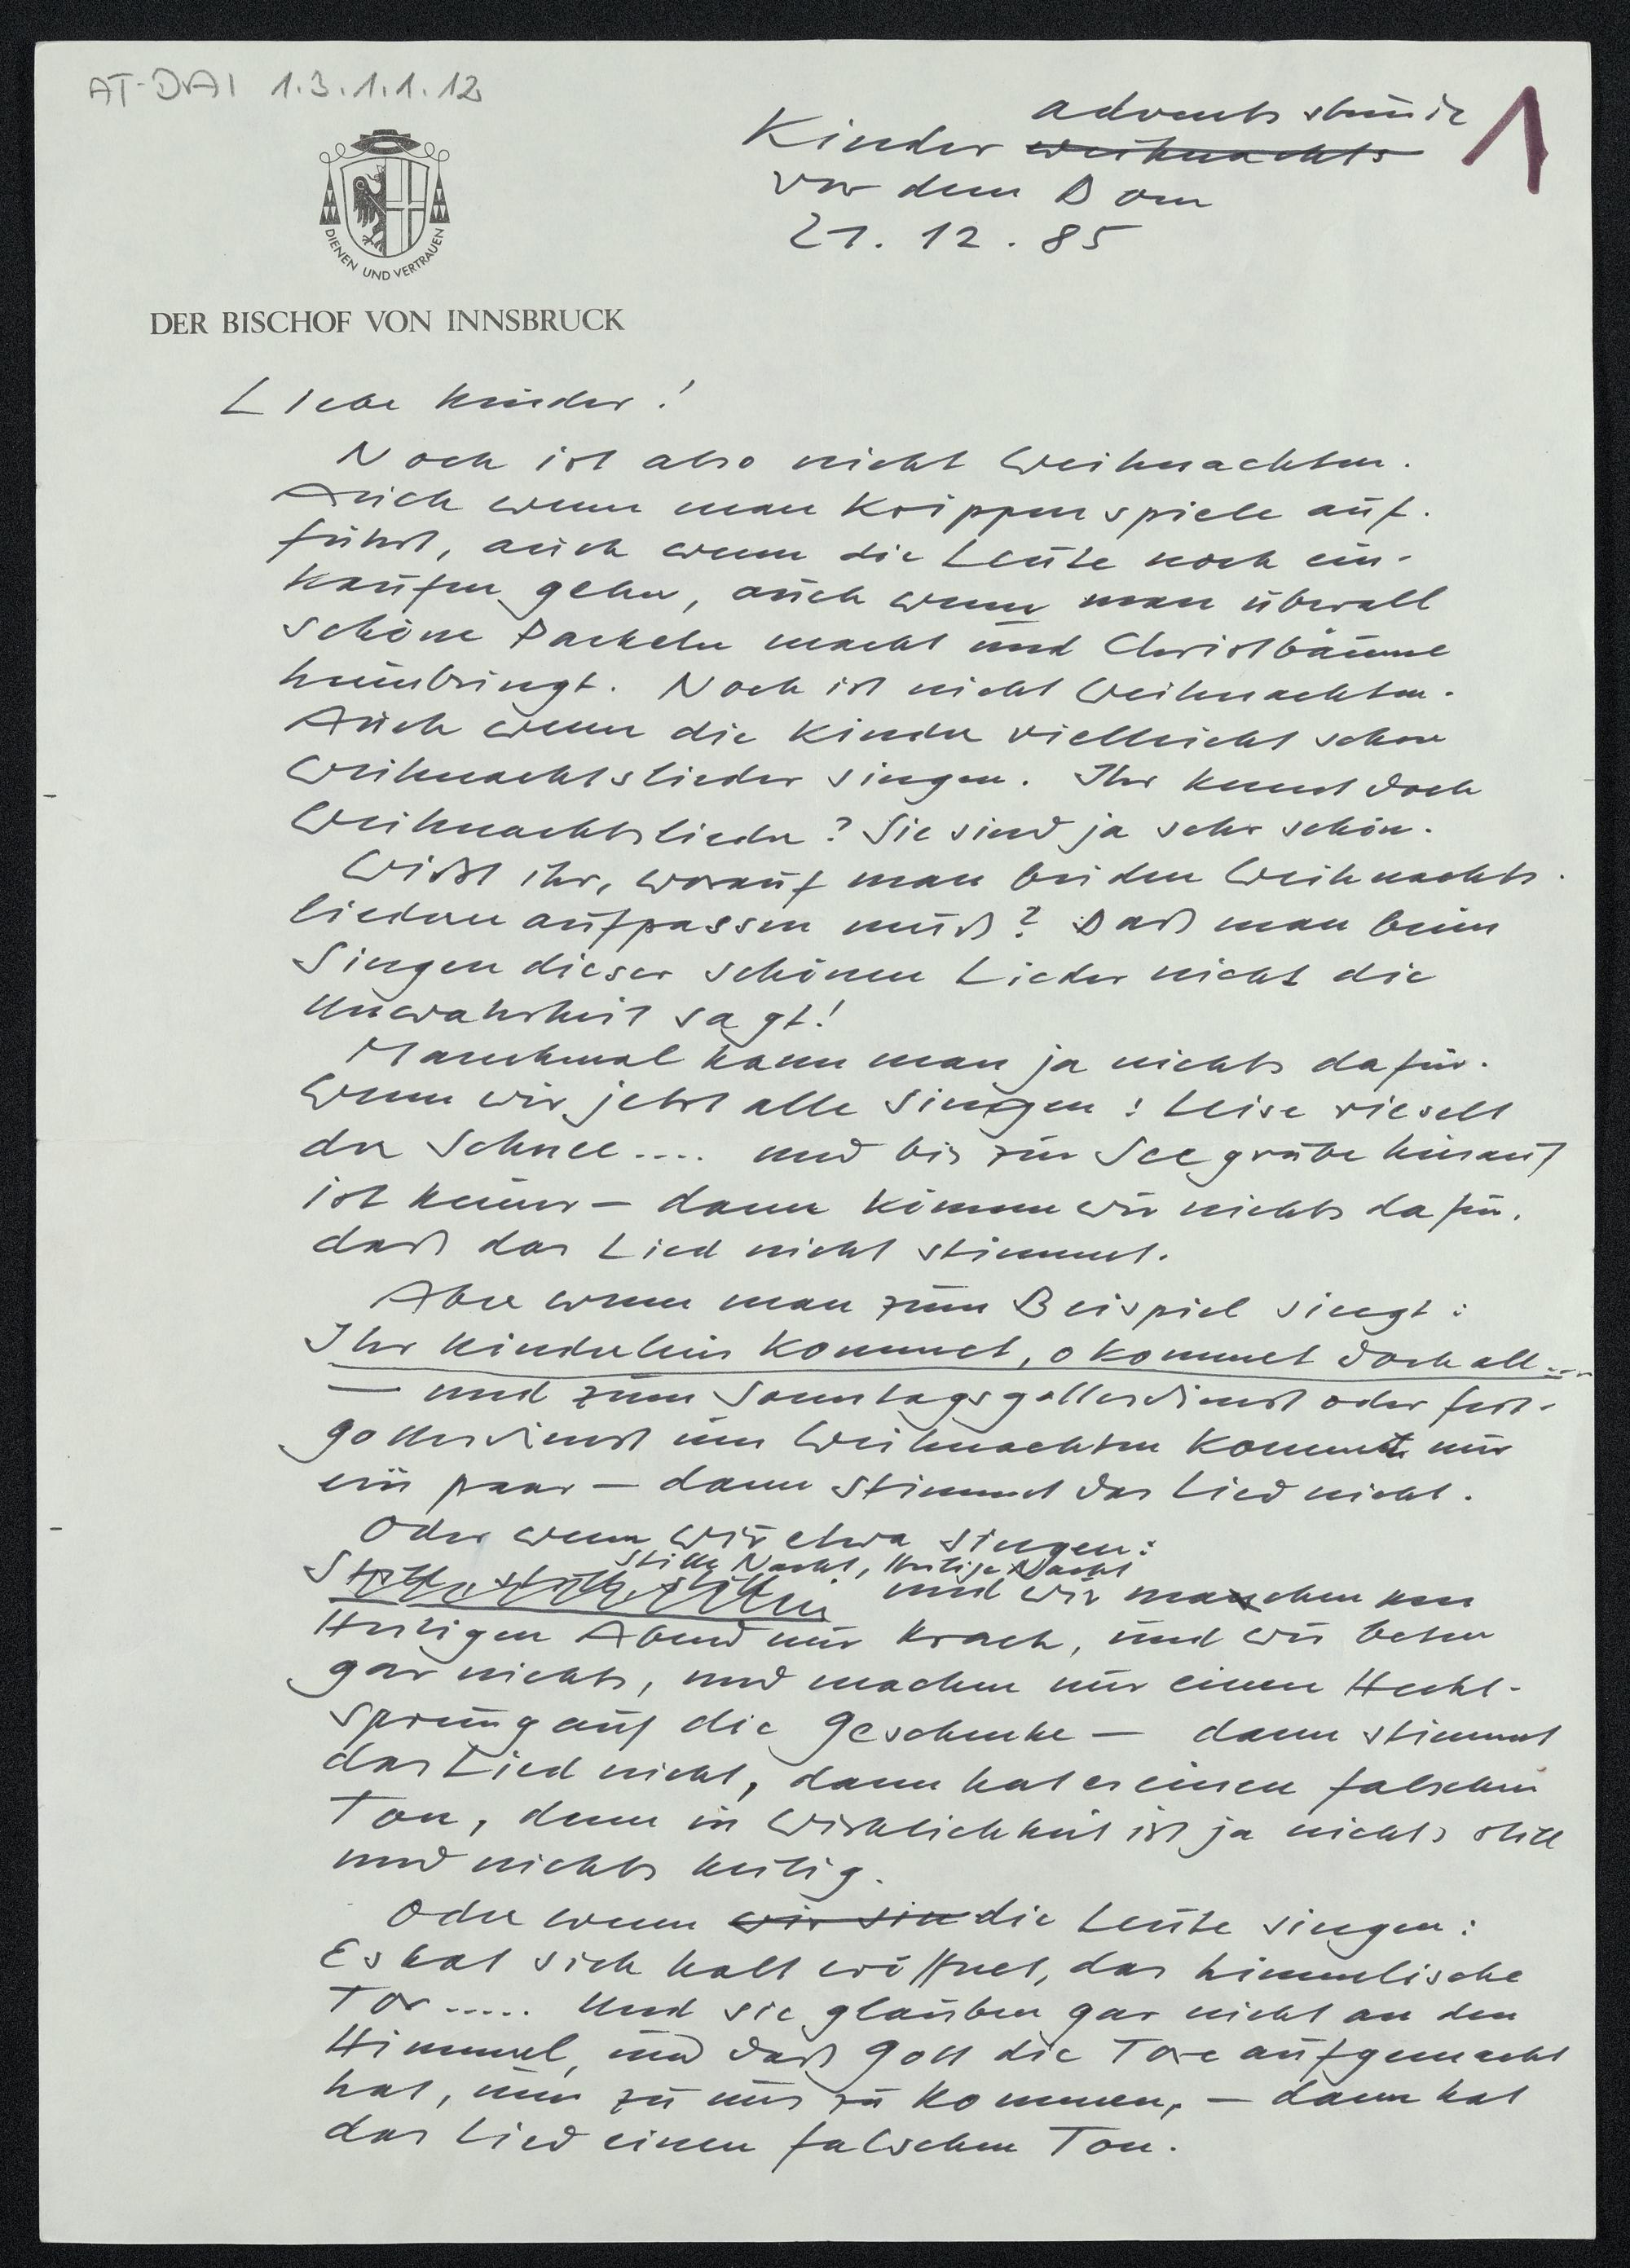 AT-DAI 1.3.1.1.12
adventsstunde
1
Kinder weihnachts
vor dem Dom
21. 12. 85
DIENEN UND VERTRAUEN
DER BISCHOF VON INNSBRUCK
Liebe Kinder!
Noch ist also nicht Weihnachten.
Auch wenn man Krippenspiele auf-
führt, auch wenn die Leute noch ein-
kaufen gehn, auch wenn man überall
schöne Packeln macht und Christbäume
heimbringt. Noch ist nicht Weihnachten.
Auch wenn die Kinder vielleicht schon
Weihnachtslieder singen. Ihr kennt doch
Weihnachtslieder? Sie sind ja sehr schön.
Wißt ihr, worauf man bei den Weihnachts-
liedern aufpassen muß? Daß man beim
Singen dieser schönen Lieder nicht die
Unwahrheit sagt!
Manchmal kann man ja nichts dafür.
Wenn wir jetzt alle singen: Leise rieselt
der Schnee.... und bis zur Seegrube hinauf
ist keiner – dann können wir nichts dafür,
daß das Lied nicht stimmt.
Aber wenn man zum Beispiel singt:
Ihr Kinderlein kommet, o kommet doch all....
– und zum Sonntagsgottesdienst oder Fest-
gottesdienst um Weihnachten kommt nur
ein paar – dann stimmt das Lied nicht.
Oder wenn wir etwa singen:
Stille Nacht, Heilige Nacht
und wir machen am
Heiligen Abend nur Krach, und wir beten
gar nichts, und machen nur einen Hecht-
sprung auf die Geschenke – dann stimmt
das Lied nicht, dann hat es einen falschen
Ton, denn in Wirklichkeit ist ja nichts still
und nichts heilig.
Oder wenn wir sin die Leute singen:
Es hat sich halt eröffnet, das himmlische
Tor..... Und sie glauben gar nicht an den
Himmel, und daß Gott die Tore aufgemacht
hat, um zu uns zu kommen, – dann hat
das Lied einen falschen Ton.